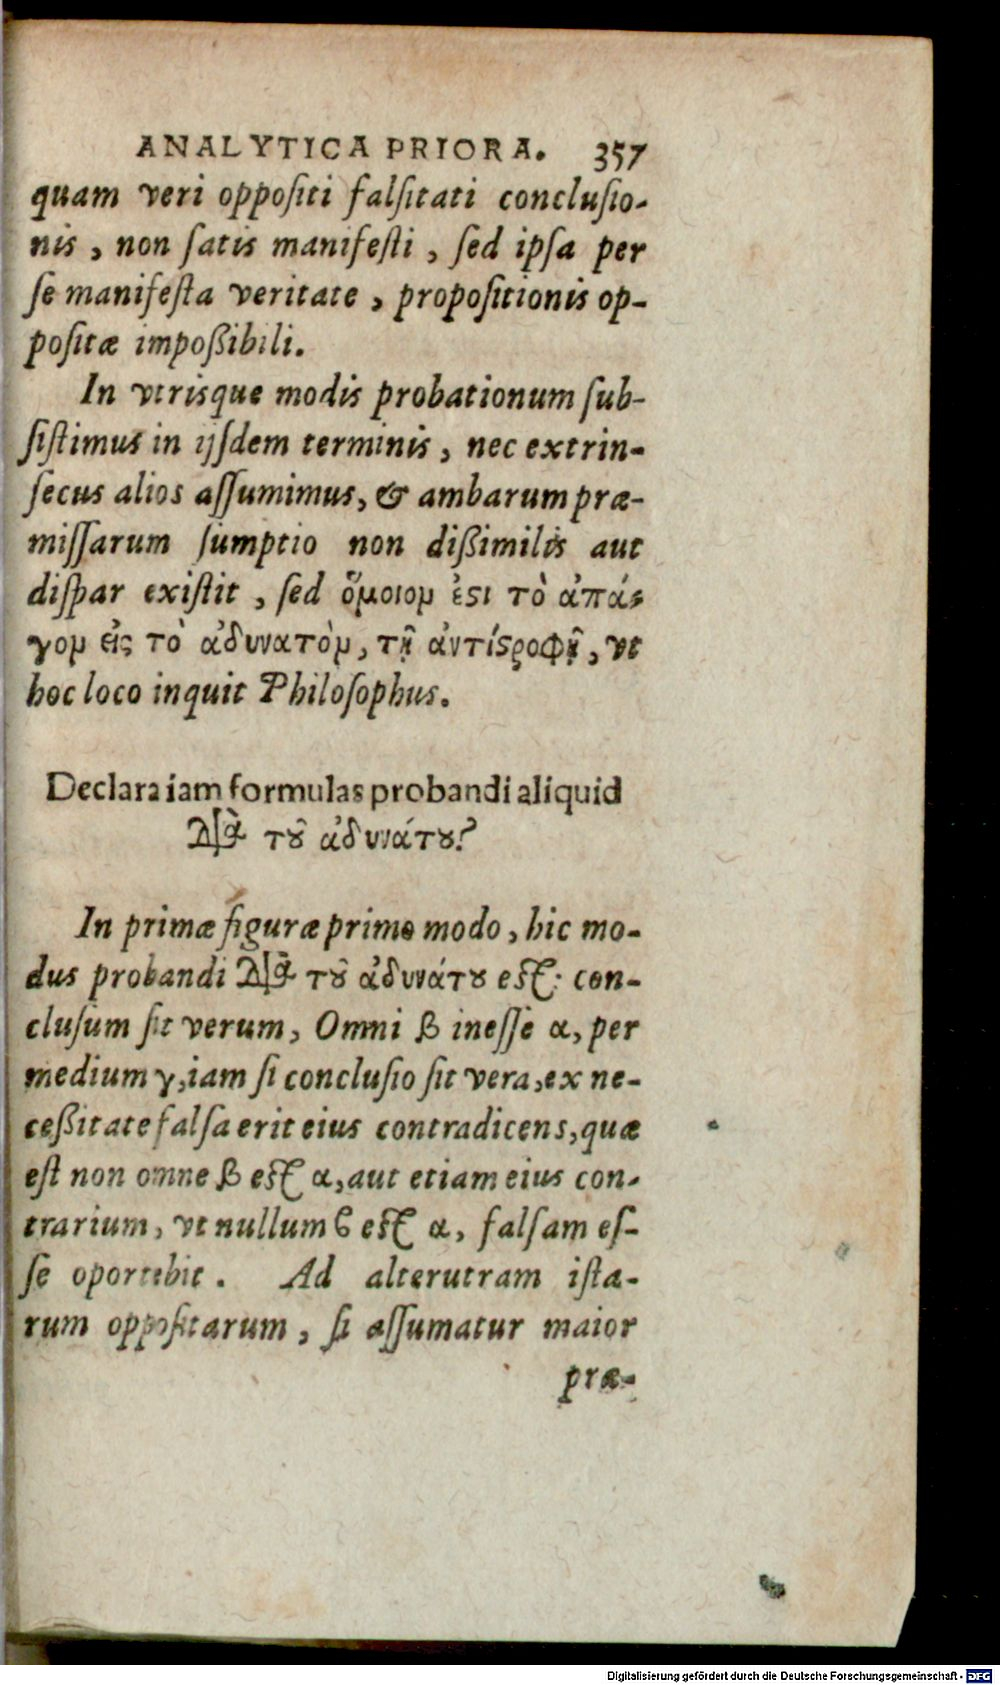 ANALYTICA PRIORA. 357
quam veri oppositi falsitati conclusio-
nis, non satis manifesti, sed ipsa per
se manifesta veritate, propositionis op-
positæ impoßibili.
In vtrisque modis probationum sub-
sistimus in ijsdem terminis, nec extrin-
secus alios assumimus, & ambarum præ-
missarum sumptio non dißimilis aut
dispar existit, sed ὅμοιομ ἐϛι τὸ ἀπά-
γομ εἰς τὸ ἀδυνατὸμ, τῇ ἀντίϛροφῇ, vt
hoc loco inquit Philosophus.
Declara iam formulas probandi aliquid
Διὰ τȣ͂ ἀδυνάτȣ?
In primæ figuræ primo modo, hic mo-
dus probandi Διὰ τȣ͂ ἀδυνάτȣ est: con-
clusum sit verum, Omni β inesse α, per
medium γ, iam si conclusio sit vera, ex ne-
ceßitate falsa erit eius contradicens, quæ
est non omne β est α, aut etiam eius con-
trarium, vt nullum ϐ est α, falsam es-
se oportebit. Ad alterutram ista-
rum oppositarum, si assumatur maior
præ-
Digitalisierung gefördert durch die Deutsche Forschungsgemeinschaft - DFG